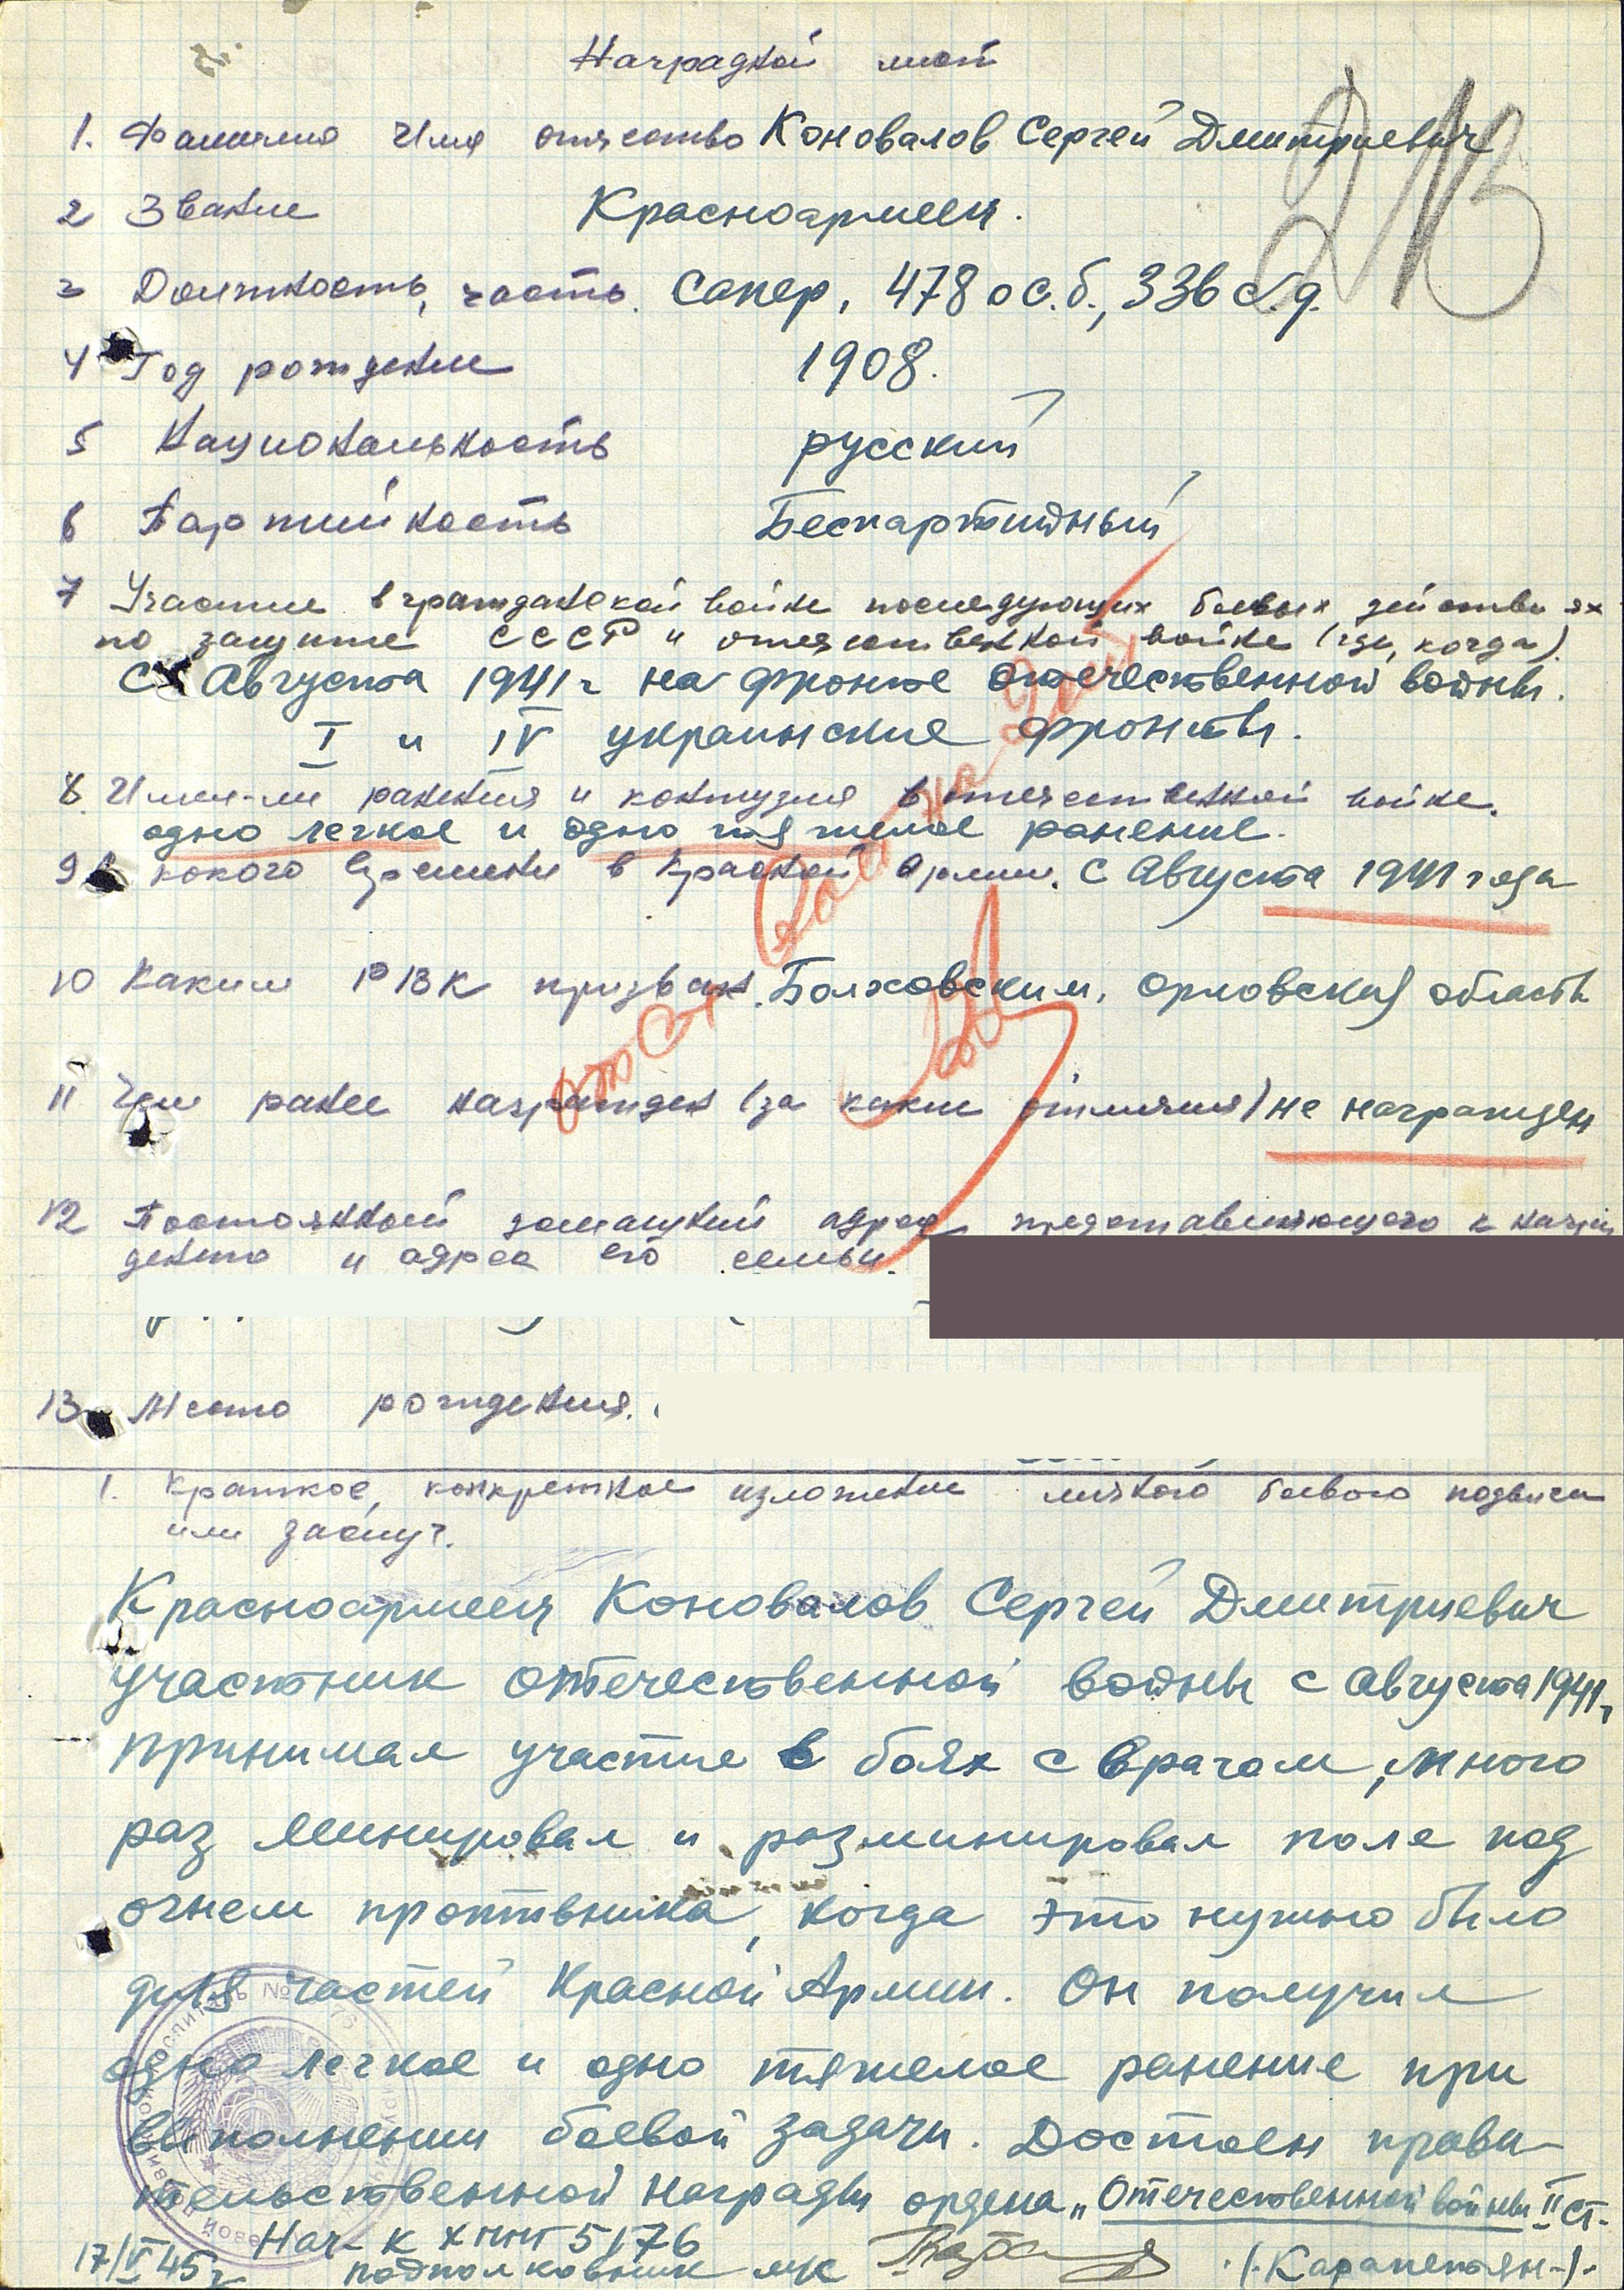 Наградной лист
213
1. Фамилия Имя отчество Коновалов Сергей Дмитриевич
2 Звание Красноармеец.
3 Должность, часть. Сапер, 478 о с.б., 336 с.д.
4 Год рождения 1908.
5 Национальность русский
6 Партийность Беспартийный
7 Участие в гражданской войне последующих боевых действиях
по защите СССР и отечественной войне (где, когда).
С Августа 1941 г на фронте Отечественной войны.
I и IV украинские фронты.
8. Имеи-ли ранения и контузия в отечественной войне.
одно легкое и одно тяжелое ранение.
9 С кокого времени в Красной Армии. С Августа 1941 года
10 Каким РВК призван. Болховским, Орловская область
11 Чем ранее награжден (за какие отличия) не награжден
12 Постоянный домашний адрес представляющего к награж
дению и адрес его семьи.
13. Место рождения.
1. Краткое, конкретное изложение личного боевого подвига
или заслуг.
Красноармеец Коновалов Сергей Дмитриевич
участник отечественной войны с Августа 1941 г
принимал участие в боях с врагом, много
раз минировал и разминировал поле под
огнем противника, когда это нужно было
для частей Красной Армии. Он получил
одно легкое и одно тяжелое ранение при
выполнении боевой задачи. Достоен прави-
тельственной Награды ордена „Отечественной войны II ст.
Нач-к хппг 5176
17/V 45 г. подполковник м/с (Карапетян)